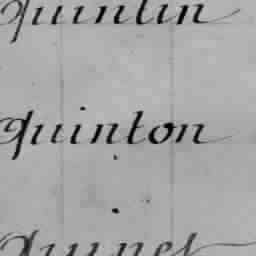 Quintin
Quinton
Quinet